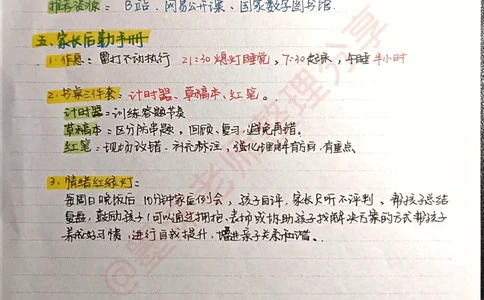 推荐资源：B站、网易公开课、国家数字图书馆.
五、家长后勤手册
1.作息：雷打不动执行 21:30熄灯睡觉，7:30起床，午睡半小时
2.书桌三件套：计时器、草稿本、红笔。
计时器：训练答题节奏
草稿本：区分防串题，回顾、复习，避免再错。
红笔：现场改错、补充标注，强化理解有方向，有重点、
3.情绪红绿灯：
每周日晚饭后10分钟家庭例会，孩子自评，家长只听不评判、帮孩子总结
复盘，鼓励孩子（可以通过拥抱、表扬或协助孩子找解决方案的方式帮孩子
养成好习惯，进行自我提升，增进亲子关系和谐。
老师整理分享